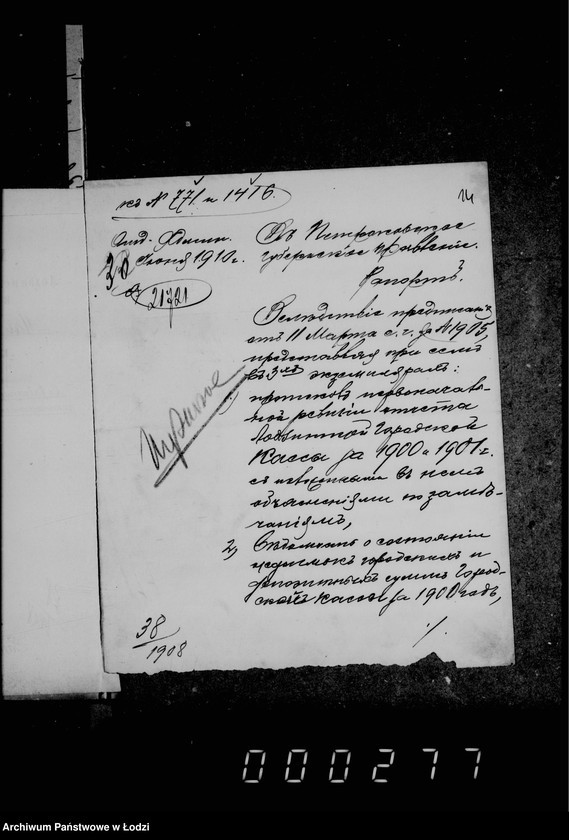 къ № 771. и 1416.
14
Отд. Админ.
30 Іюня 1910 г.
21721
Въ Петроковское
Губернское Правленіе.
Рапортъ.
Вслѣдствіе предписанія
отъ 11 Марта с. г. за № 1905,
представляя при семъ
въ 3хъ экземплярахъ:
протоколъ первоначаль-
ной ревизіи отчета
Городской
Кассы за 1900 и 1901 г.
съ въ немъ
объясненіями по замѣ-
чаніямъ,
2, Вѣдомость о состояніи
недоимокъ городскихъ и
депозитныхъ суммъ Город-
ской Кассы за 1900 годъ,
./.
38/1908
000277
Archiwum Państwowe w Łodzi